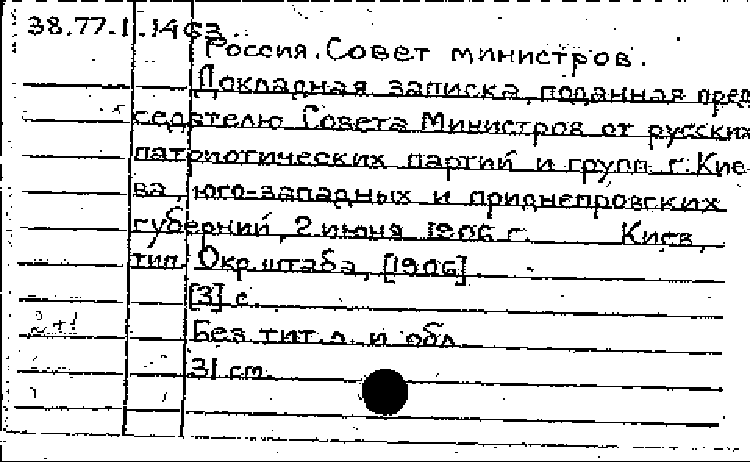 38.77.1.1463.
Россия. Совет министров.
Докладная записка, поданная пред
седателю Совета Министров от русских
патриотических партий и групп г. Кие-
ва, юго-западных и приднепровских
губерний, 2 июня 1906 г. Киев,
тип. Окр. штаба, [1906].
[3] с.
2+1 Без тит. л. и обл.
31 см.